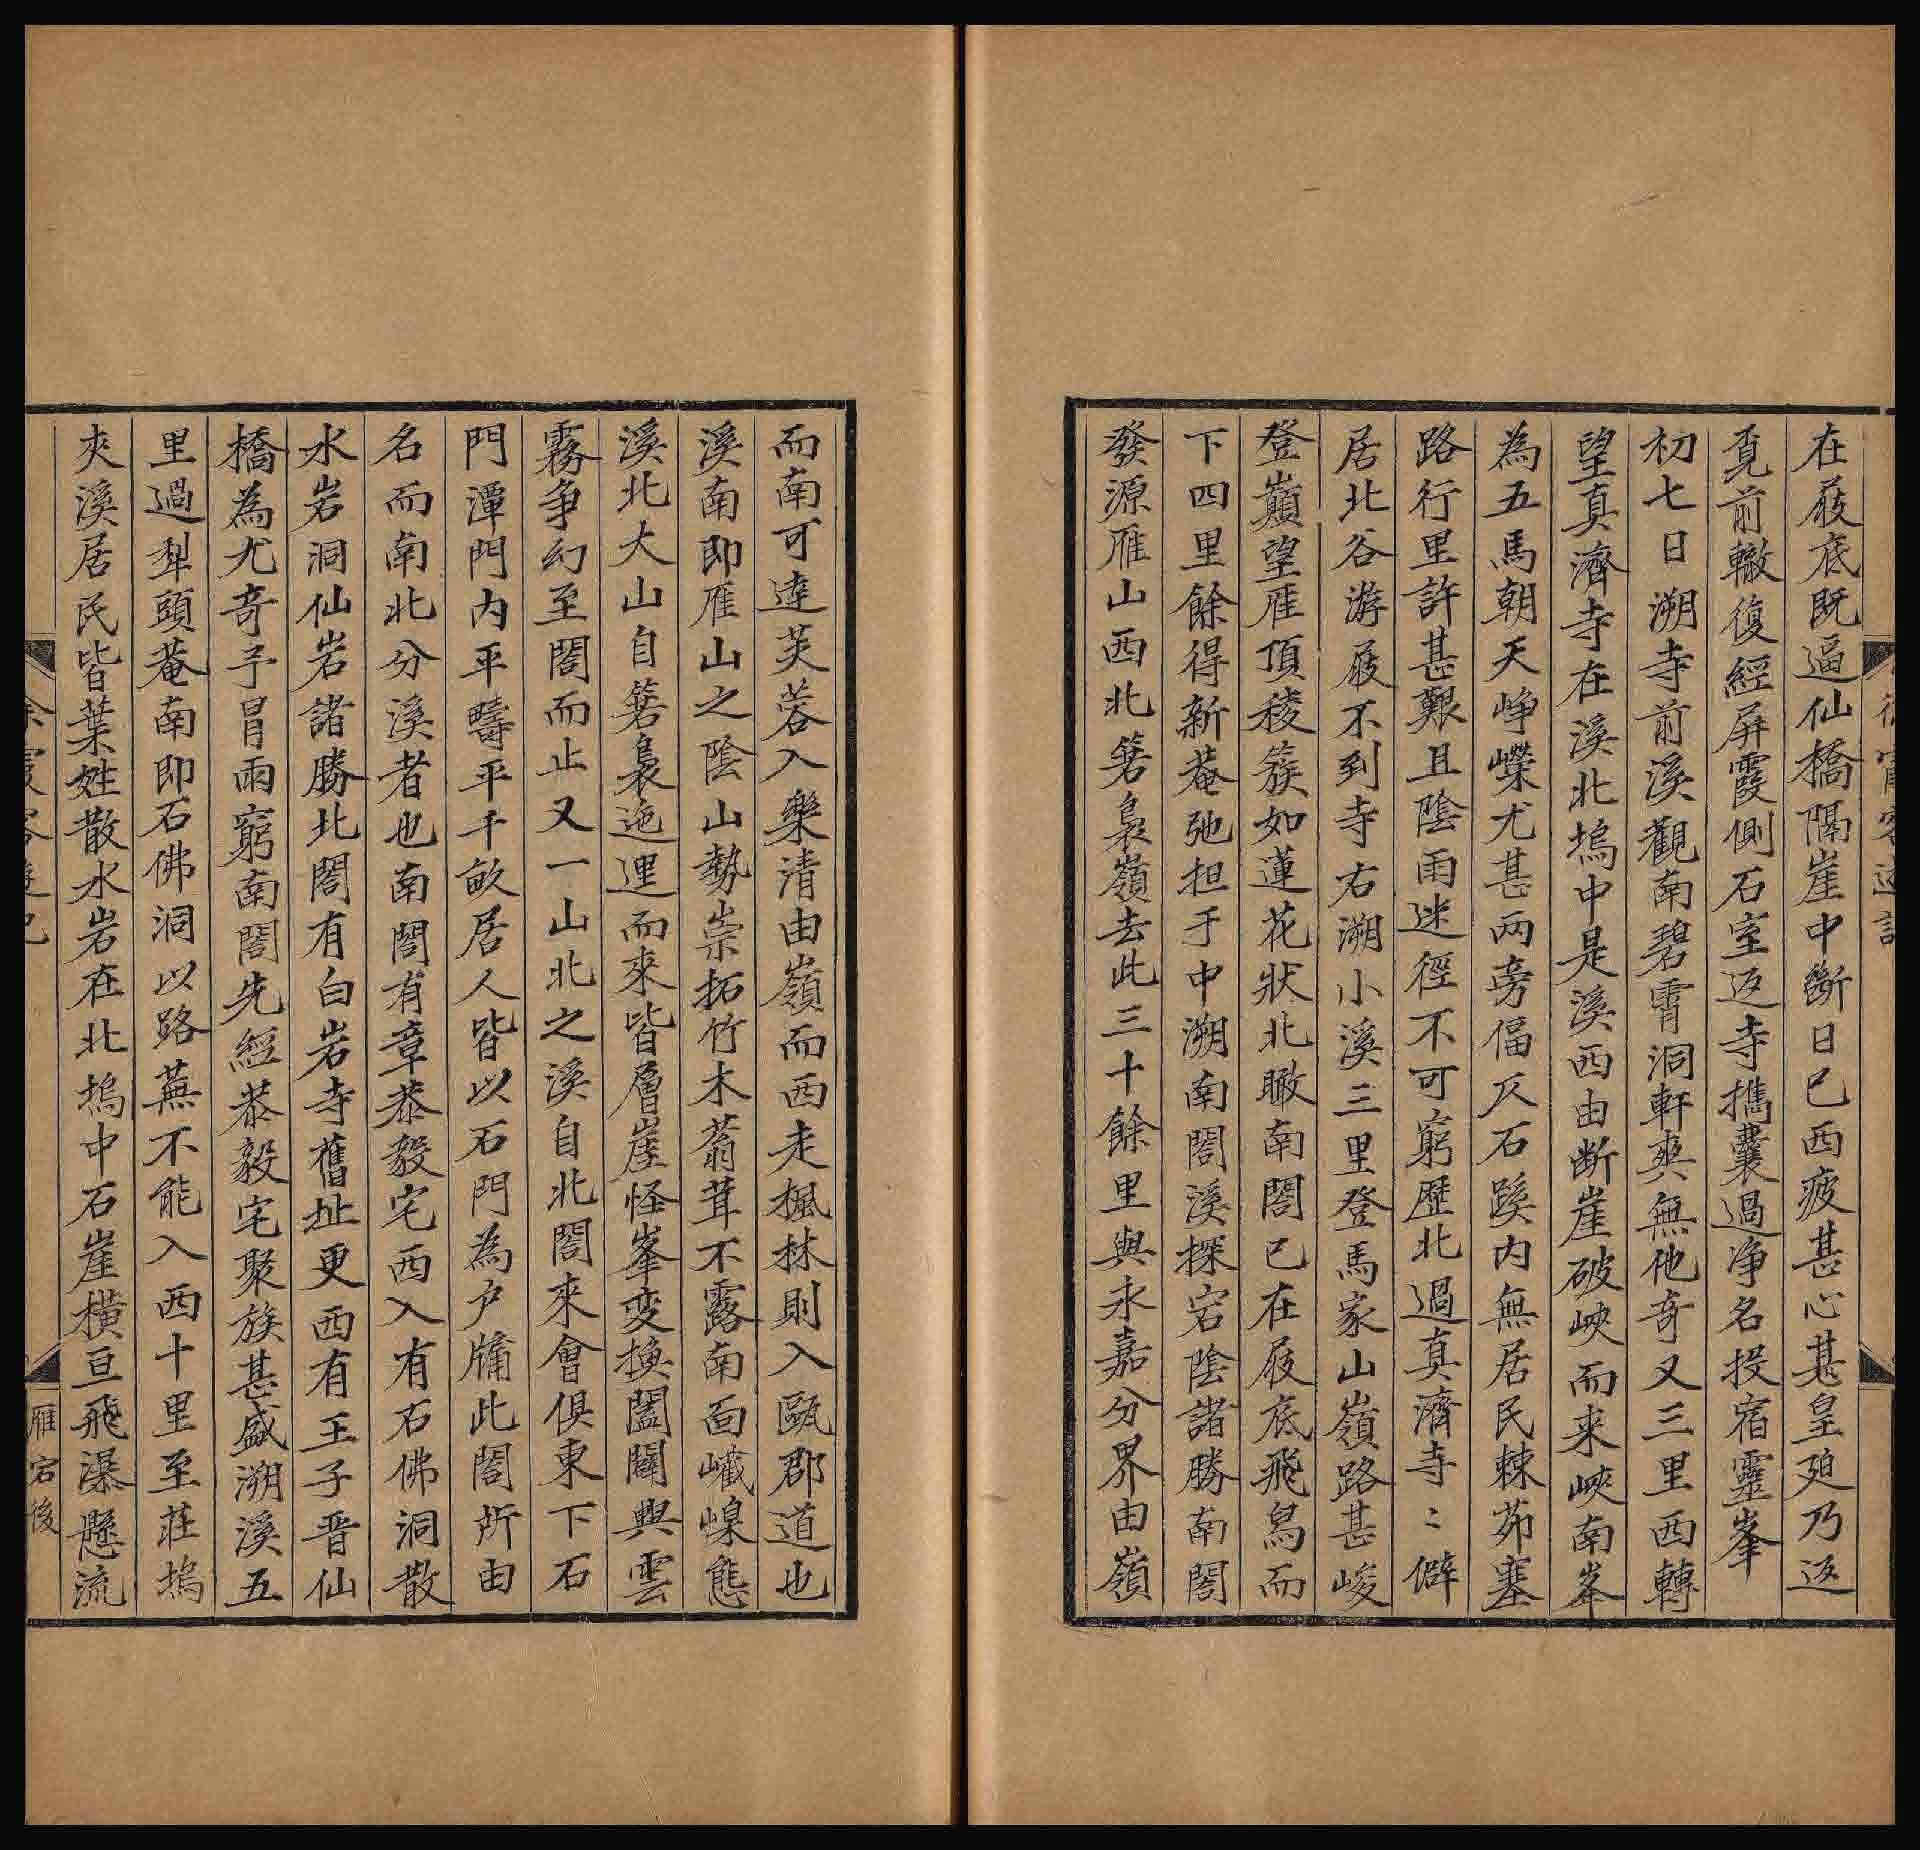 在屐底既逼仙橋隔崖中斷日已西疲甚心甚皇廹乃返
覔前轍復經屏霞側石室返寺攜囊過浄名投宿靈峯
初七日溯寺前溪觀南碧霄洞軒爽無他奇又三里西轉
望真濟寺在溪北塢中是溪西由断崖破峽而来峽南峯
為五馬朝天崢嶸尤甚兩旁偪仄石蹊内無居民棘茆塞
路行里許甚艱且陰雨迷徑不可窮歷北過真濟寺〻僻
居北谷游屐不到寺右溯小溪三里登馬家山嶺路甚峻
登巔望雁頂稜簇如蓮花狀北瞰南閤已在屐底飛舄而
下四里餘得新菴弛担于中溯南閤溪探宕陰諸勝南閤
發源雁山西北箬裊嶺去此三十餘里與永嘉分界由嶺
而南可達芙蓉入樂清由嶺而西走楓林則入甌郡道也
溪南即雁山之陰山勢崇拓竹木蓊茸不露南面巉嵲態
溪北大山自箬裊迤逦而來皆層崖怪峯变換闔闢與雲
霧争幻至閤而止又一山北之溪自北閤來會俱東下石
門潭門内平疇平千畝居人皆以石門為户牖此閤所由
名而南北分溪者也南閤有章恭毅宅西入有石佛洞散
水岩洞仙岩諸勝北閤有白岩寺舊址更西有王子晋仙
橋為尤奇予冒雨窮南閤先經恭毅宅聚族甚盛溯溪五
里過犁頭菴南即石佛洞以路蕪不能入西十里至莊塢
夾溪居民皆葉姓散水岩在北塢中石崖橫亘飛瀑懸流
雁宕後